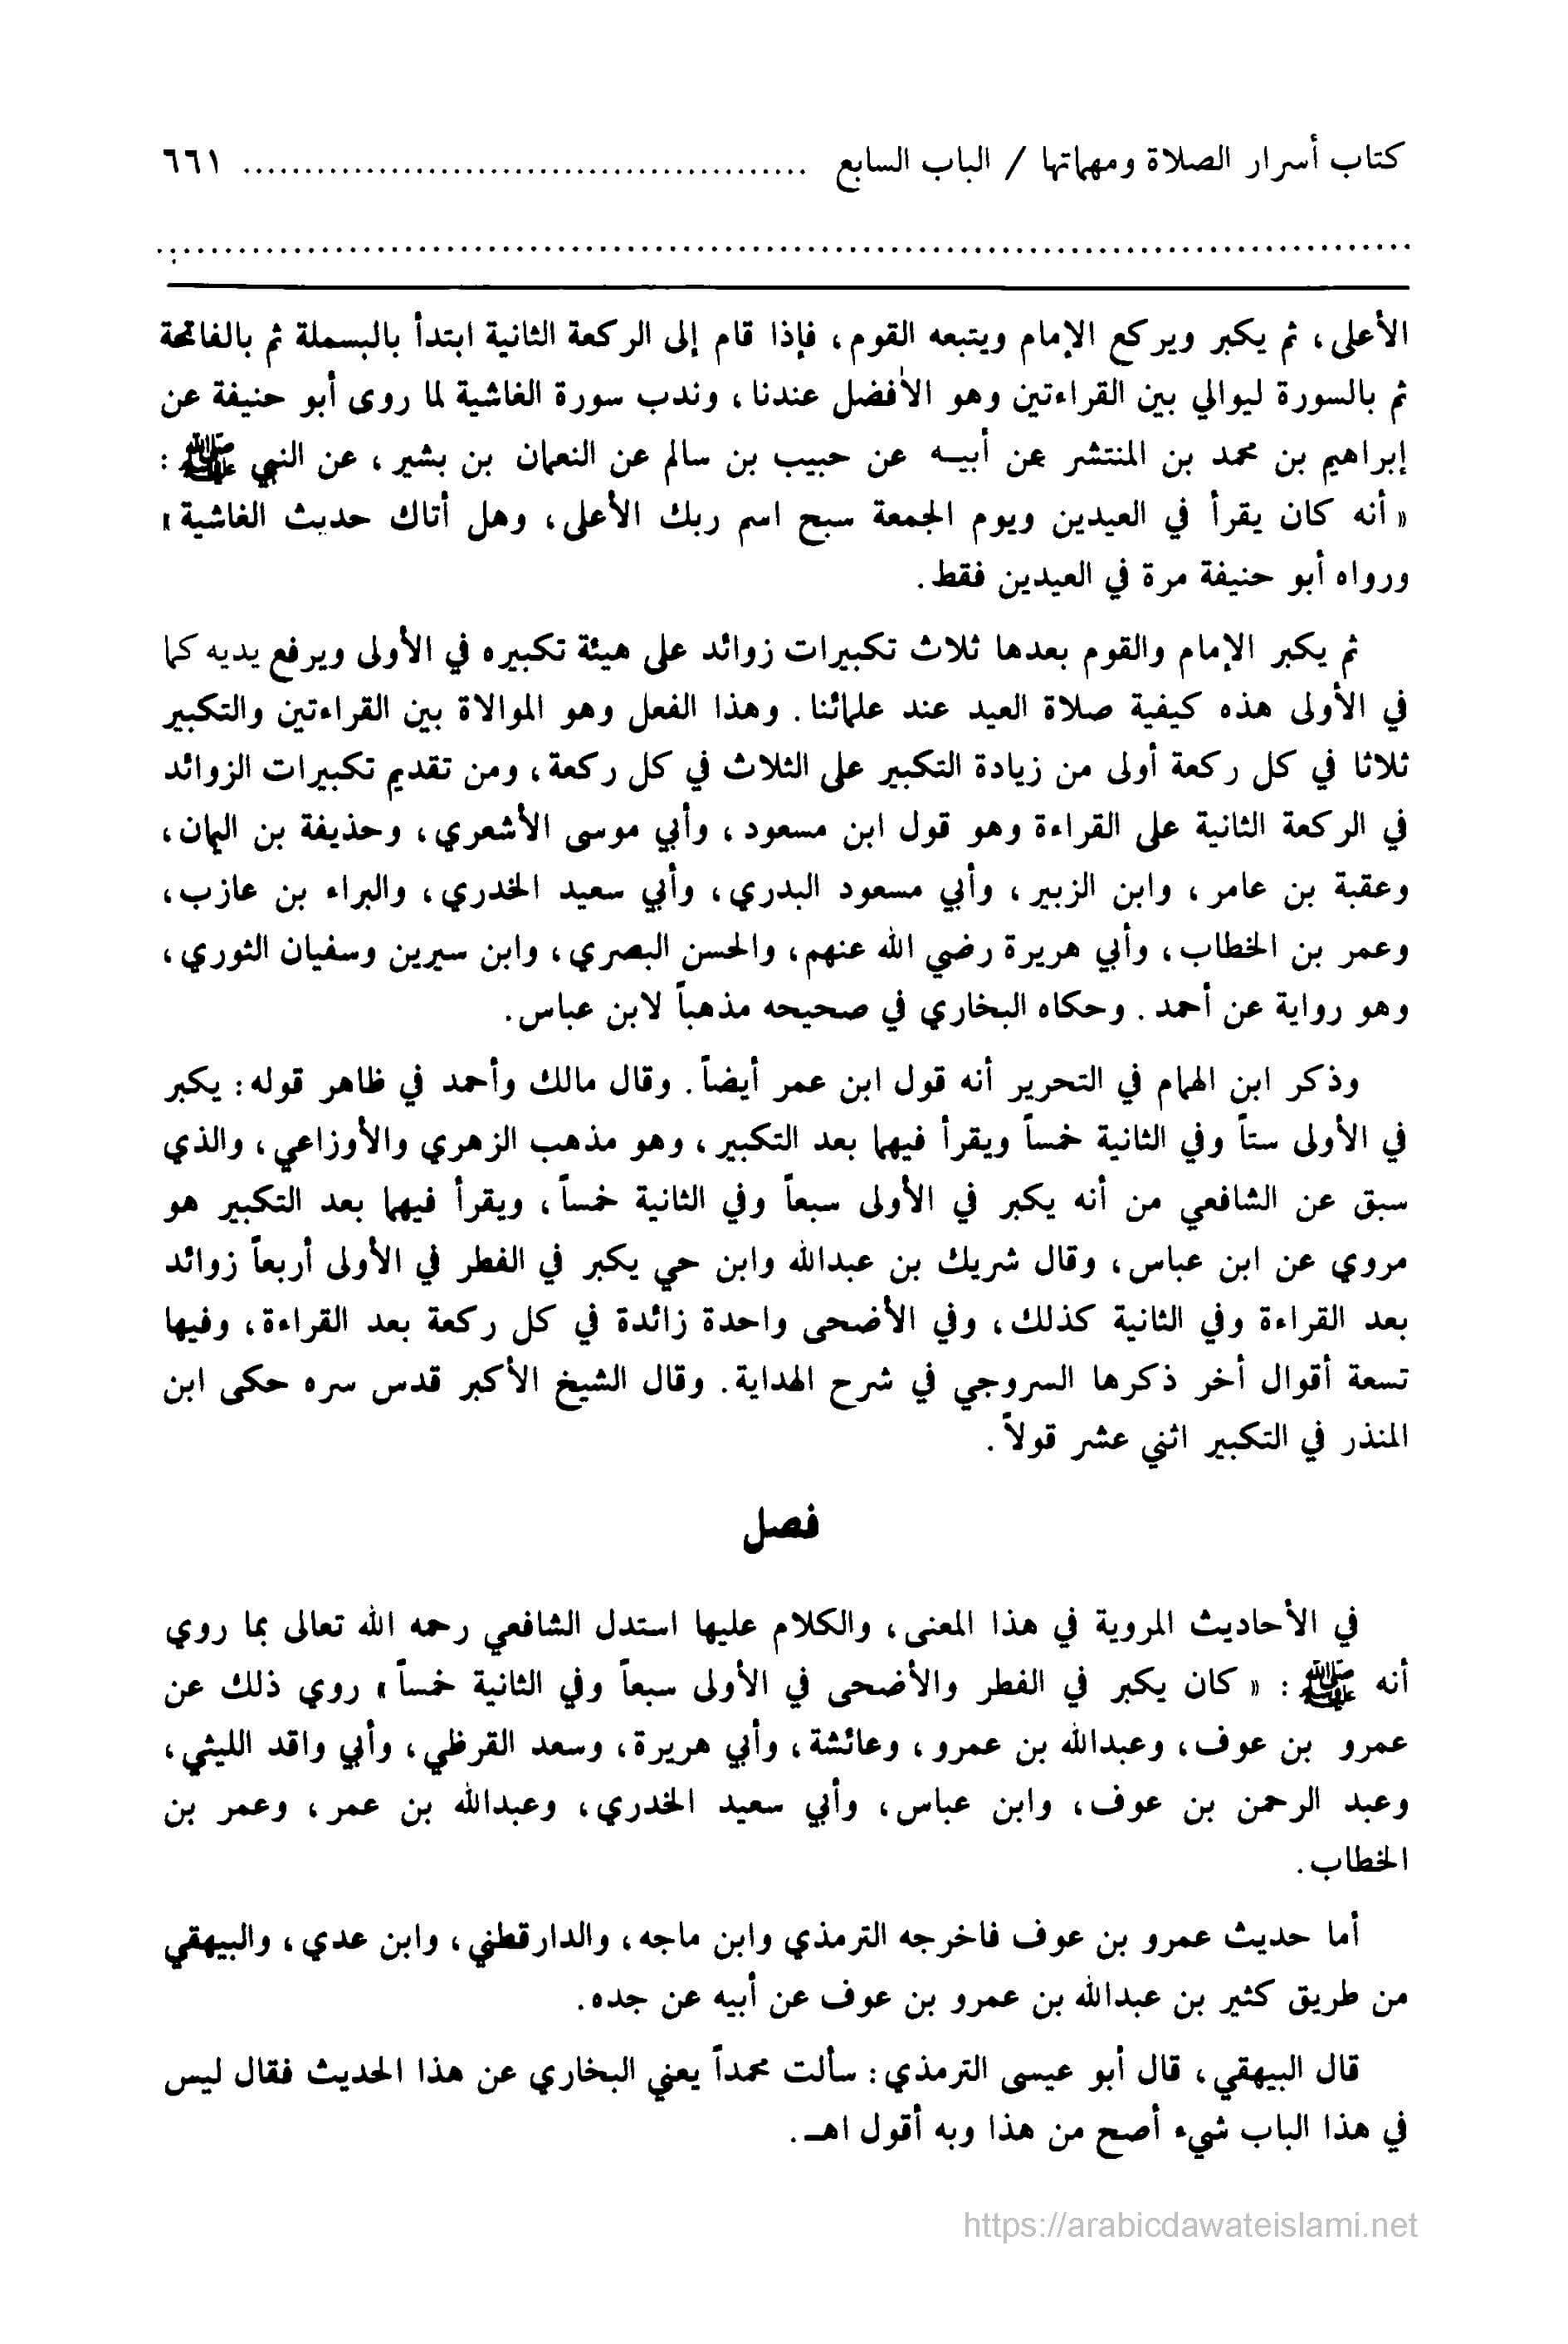 كتاب أسرار الصلاة ومهماتها / الباب السابع .............................................. ٦٦١
..........................................................................................
الأعلى، ثم يكبر ويركع الإمام ويتبعه القوم، فإذا قام إلى الركعة الثانية ابتدأ بالبسملة ثم بالفاتحة
ثم بالسورة ليوالي بين القراءتين وهو الأفضل عندنا، وندب سورة الغاشية لما روى أبو حنيفة عن
إبراهيم بن محمد بن المنتشر عن أبيـه عن حبيب بن سالم عن النعمان بن بشير، عن النبي ﷺ :
« أنه كان يقرأ في العيدين ويوم الجمعة سبح اسم ربك الأعلى، وهل أتاك حديث الغاشية »
ورواه أبو حنيفة مرة في العيدين فقط.
ثم يكبر الإمام والقوم بعدها ثلاث تكبيرات زوائد على هيئة تكبيره في الأولى ويرفع يديه كما
في الأولى هذه كيفية صلاة العيد عند علمائنا. وهذا الفعل وهو الموالاة بين القراءتين والتكبير
ثلاثا في كل ركعة أولى من زيادة التكبير على الثلاث في كل ركعة، ومن تقديم تكبيرات الزوائد
في الركعة الثانية على القراءة وهو قول ابن مسعود، وأبي موسى الأشعري، وحذيفة بن اليمان،
وعقبة بن عامر، وابن الزبير، وأبي مسعود البدري، وأبي سعيد الخدري، والبراء بن عازب،
وعمر بن الخطاب، وأبي هريرة رضي الله عنهم، والحسن البصري، وابن سيرين وسفيان الثوري،
وهو رواية عن أحمد. وحكاه البخاري في صحيحه مذهباً لابن عباس.
وذكر ابن الهمام في التحرير أنه قول ابن عمر أيضاً. وقال مالك وأحمد في ظاهر قوله: يكبر
في الأولى ستاً وفي الثانية خمساً ويقرأ فيهما بعد التكبير، وهو مذهب الزهري والأوزاعي، والذي
سبق عن الشافعي من أنه يكبر في الأولى سبعاً وفي الثانية خمساً، ويقرأ فيهما بعد التكبير هو
مروي عن ابن عباس، وقال شريك بن عبدالله وابن حي يكبر في الفطر في الأولى أربعاً زوائد
بعد القراءة وفي الثانية كذلك، وفي الأضحى واحدة زائدة في كل ركعة بعد القراءة، وفيها
تسعة أقوال أخر ذكرها السروجي في شرح الهداية. وقال الشيخ الأكبر قدس سره حكى ابن
المنذر في التكبير اثني عشر قولاً.
فصل
في الأحاديث المروية في هذا المعنى، والكلام عليها استدل الشافعي رحمه الله تعالى بما روي
أنه ﷺ : « كان يكبر في الفطر والأضحى في الأولى سبعاً وفي الثانية خمساً » روي ذلك عن
عمرو بن عوف، وعبدالله بن عمرو، وعائشة، وأبي هريرة، وسعد القرظي، وأبي واقد الليثي،
وعبد الرحمن بن عوف، وابن عباس، وأبي سعيد الخدري، وعبدالله بن عمر، وعمر بن
الخطاب.
أما حديث عمرو بن عوف فاخرجه الترمذي وابن ماجه، والدارقطني، وابن عدي، والبيهقي
من طريق كثير بن عبدالله بن عمرو بن عوف عن أبيه عن جده.
قال البيهقي، قال أبو عيسى الترمذي: سألت محمداً يعني البخاري عن هذا الحديث فقال ليس
في هذا الباب شيء أصح من هذا وبه أقول اهـ.
https://arabicdawateislami.net